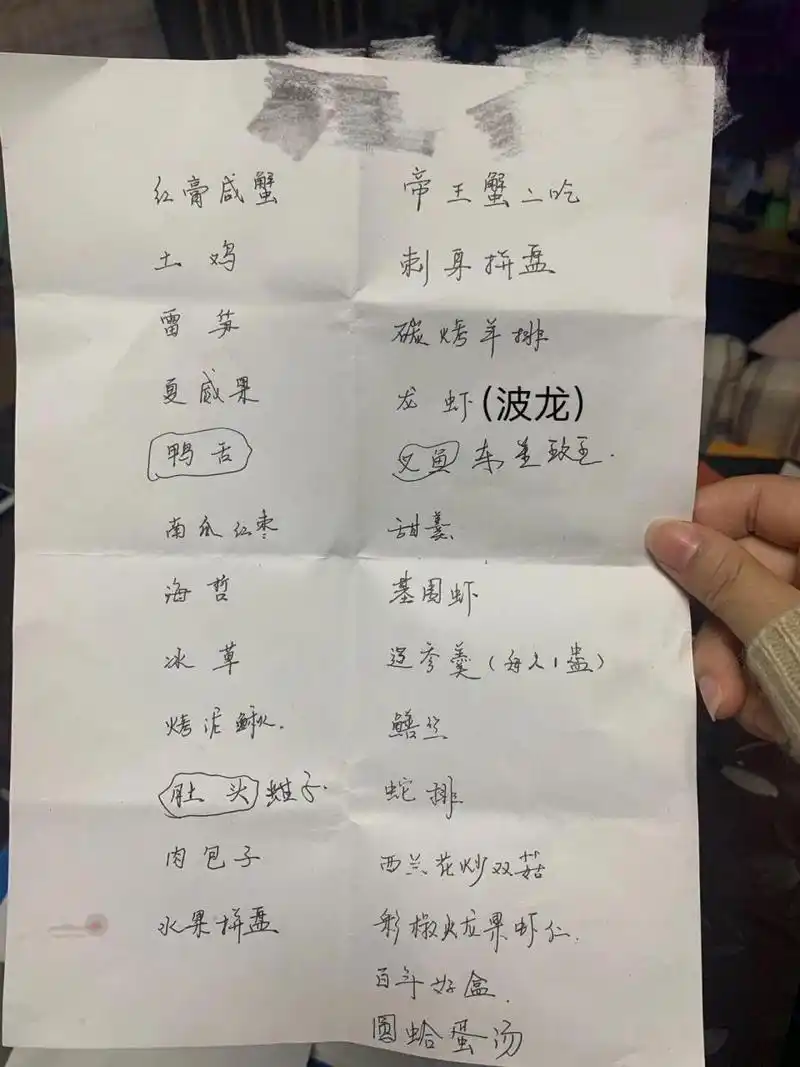 红膏咸蟹
土鸡
雷笋
夏威果
鸭舌
南瓜红枣
海哲
冰草
烤泥鳅
肚头 蛏子
肉包子
水果拼盘
帝王蟹二吃
刺身拼盘
碳烤羊排
龙虾(波龙)
叉鱼 东星
甜羹
基围虾
辽参羹(每人1盅)
鳝丝
蛇排
西兰花炒双菇
彩椒火龙果虾仁
百年好盒
圆蛤蛋汤